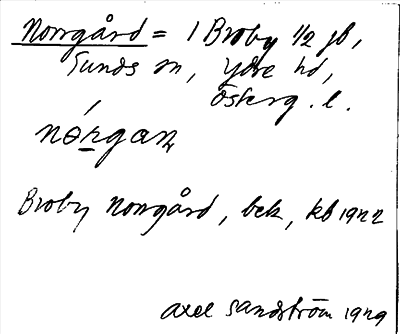 Norrgård = 1 Broby 1/2 jb,
Sunds sn, Ydre hd,
Österg. l.
nørgaṇ
Broby Norrgård, bek, kb 1922
Axel Sandström 1929